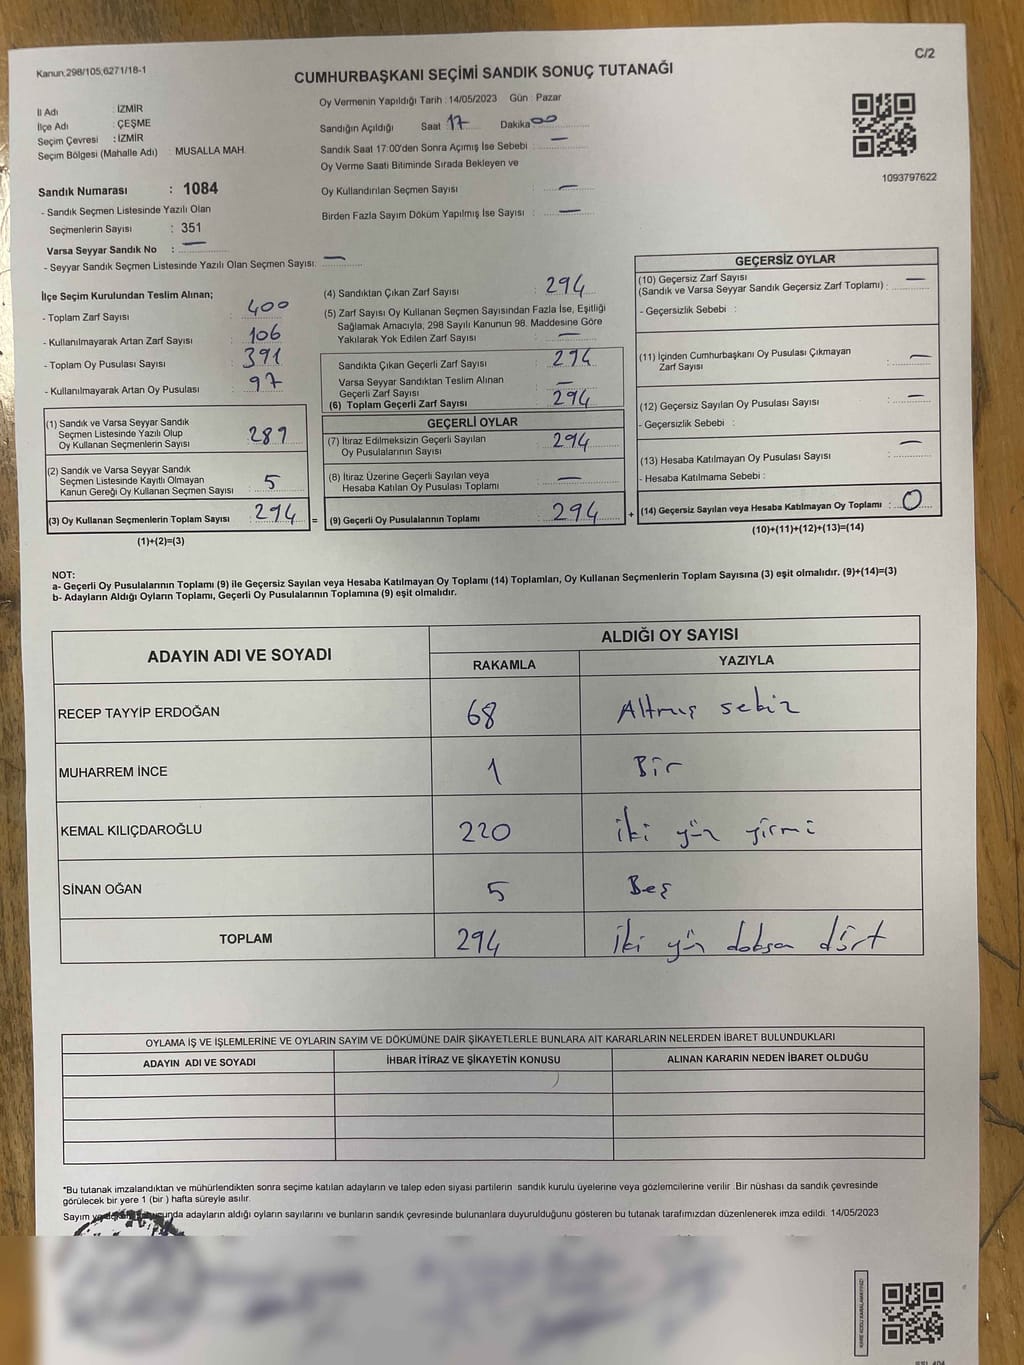 C/2
Kanun:298/105;6271/18-1
CUMHURBAŞKANI SEÇİMİ SANDIK SONUÇ TUTANAĞI
İl Adı : İZMİR
İlçe Adı : ÇEŞME
Seçim Çevresi : İZMİR
Seçim Bölgesi (Mahalle Adı) : MUSALLA MAH.
Sandık Numarası : 1084
- Sandık Seçmen Listesinde Yazılı Olan
Seçmenlerin Sayısı : 351
Varsa Seyyar Sandık No : —
- Seyyar Sandık Seçmen Listesinde Yazılı Olan Seçmen Sayısı: —
Oy Vermenin Yapıldığı Tarih : 14/05/2023 Gün : Pazar
Sandığın Açıldığı Saat 17 Dakika 00
Sandık Saat 17:00'den Sonra Açımış İse Sebebi : —
Oy Verme Saati Bitiminde Sırada Bekleyen ve
Oy Kullandırılan Seçmen Sayısı : —
Birden Fazla Sayım Döküm Yapılmış İse Sayısı : —
1093797622
İlçe Seçim Kurulundan Teslim Alınan;
- Toplam Zarf Sayısı : 400
- Kullanılmayarak Artan Zarf Sayısı : 106
- Toplam Oy Pusulası Sayısı : 391
- Kullanılmayarak Artan Oy Pusulası : 97
(1) Sandık ve Varsa Seyyar Sandık
Seçmen Listesinde Yazılı Olup
Oy Kullanan Seçmenlerin Sayısı : 289
(2) Sandık ve Varsa Seyyar Sandık
Seçmen Listesinde Kayıtlı Olmayan
Kanun Gereği Oy Kullanan Seçmen Sayısı : 5
(3) Oy Kullanan Seçmenlerin Toplam Sayısı : 294 =
(1)+(2)=(3)
(4) Sandıktan Çıkan Zarf Sayısı : 294
(5) Zarf Sayısı Oy Kullanan Seçmen Sayısından Fazla İse, Eşitliği
Sağlamak Amacıyla, 298 Sayılı Kanunun 98. Maddesine Göre
Yakılarak Yok Edilen Zarf Sayısı : —
Sandıkta Çıkan Geçerli Zarf Sayısı : 294
Varsa Seyyar Sandıktan Teslim Alınan
Geçerli Zarf Sayısı : —
(6) Toplam Geçerli Zarf Sayısı : 294
GEÇERLİ OYLAR
(7) İtiraz Edilmeksizin Geçerli Sayılan
Oy Pusulalarının Sayısı : 294
(8) İtiraz Üzerine Geçerli Sayılan veya
Hesaba Katılan Oy Pusulası Toplamı : —
(9) Geçerli Oy Pusulalarının Toplamı : 294 +
GEÇERSİZ OYLAR
(10) Geçersiz Zarf Sayısı
(Sandık ve Varsa Seyyar Sandık Geçersiz Zarf Toplamı) : —
- Geçersizlik Sebebi :
(11) İçinden Cumhurbaşkanı Oy Pusulası Çıkmayan
Zarf Sayısı : —
(12) Geçersiz Sayılan Oy Pusulası Sayısı : —
- Geçersizlik Sebebi :
(13) Hesaba Katılmayan Oy Pusulası Sayısı : —
- Hesaba Katılmama Sebebi :
(14) Geçersiz Sayılan veya Hesaba Katılmayan Oy Toplamı : 0
(10)+(11)+(12)+(13)=(14)
NOT:
a- Geçerli Oy Pusulalarının Toplamı (9) ile Geçersiz Sayılan veya Hesaba Katılmayan Oy Toplamı (14) Toplamları, Oy Kullanan Seçmenlerin Toplam Sayısına (3) eşit olmalıdır. (9)+(14)=(3)
b- Adayların Aldığı Oyların Toplamı, Geçerli Oy Pusulalarının Toplamına (9) eşit olmalıdır.
ADAYIN ADI VE SOYADI
ALDIĞI OY SAYISI
RAKAMLA YAZIYLA
RECEP TAYYİP ERDOĞAN 68 Altmış sekiz
MUHARREM İNCE 1 Bir
KEMAL KILIÇDAROĞLU 220 iki yüz yirmi
SİNAN OĞAN 5 Beş
TOPLAM 294 iki yüz doksan dört
OYLAMA İŞ VE İŞLEMLERİNE VE OYLARIN SAYIM VE DÖKÜMÜNE DAİR ŞİKAYETLERLE BUNLARA AİT KARARLARIN NELERDEN İBARET BULUNDUKLARI
ADAYIN ADI VE SOYADI İHBAR İTİRAZ VE ŞİKAYETİN KONUSU ALINAN KARARIN NEDEN İBARET OLDUĞU
*Bu tutanak imzalandıktan ve mühürlendikten sonra seçime katılan adayların ve talep eden siyasi partilerin sandık kurulu üyelerine veya gözlemcilerine verilir. Bir nüshası da sandık çevresinde
görülecek bir yere 1 (bir) hafta süreyle asılır.
Sayım adayların aldığı oyların sayılarını ve bunların sandık çevresinde bulunanlara duyurulduğunu gösteren bu tutanak tarafımızdan düzenlenerek imza edildi. 14/05/2023